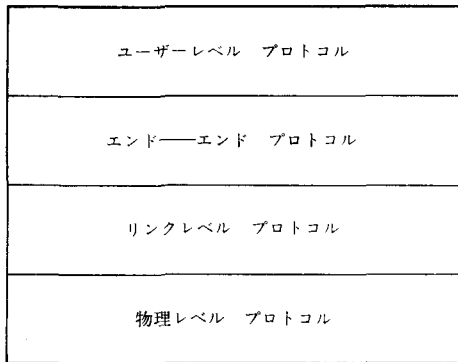 ユーザーレベル　プロトコル
エンド――エンド　プロトコル
リンクレベル　プロトコル
物理レベル　プロトコル